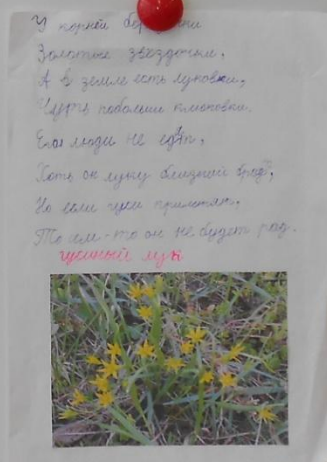 У корней березки
Золотые звездочки,
А в земле есть луковки,
Чуть побольше клюковки.
Его люди не едят,
Хоть он луку близкий брат,
Но если гуси прилетят,
То им-то он не будет рад.
гусиный лук